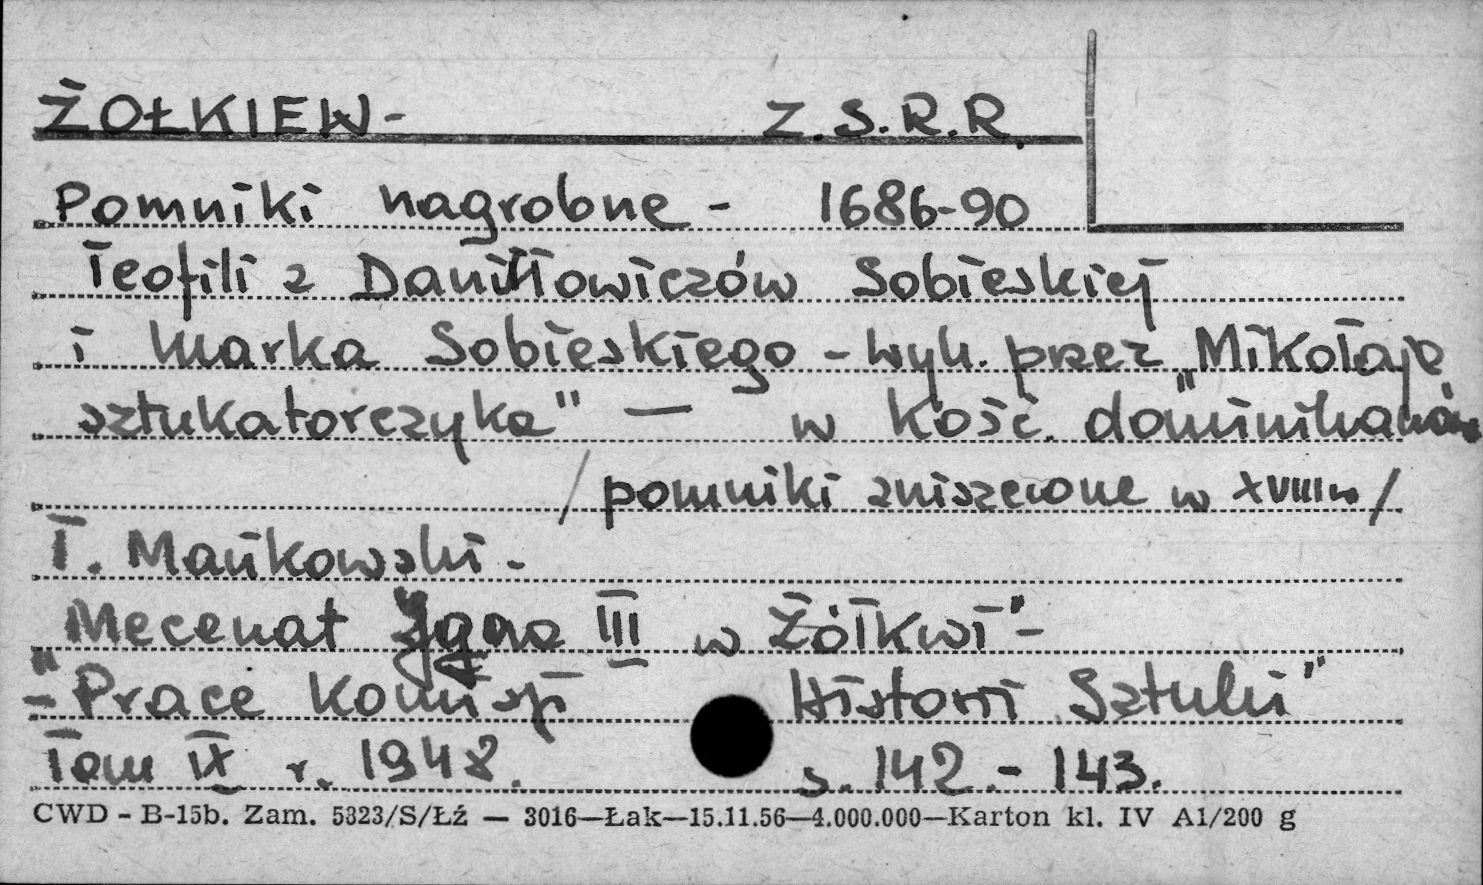 ŻOŁKIEW - Z.S.R.R.
Pomniki nagrobne - 1686-90
Teofili z Daniłłowiczów Sobieskiej
i Marka Sobieskiego - wyk. przez "Mikołaja
sztukatorczyka" — w kość. dominikanów
/pomniki zniszczone w XVIII w/
T. Mańkowski -
Mecenat Jana III w Żółkwi" -
- "Prace Komisji Historii Sztuki"
Tom IX r. 1948. s. 142. - 143.
CWD - B-15b. Zam. 5323/S/Łź — 3016—Łak—15.11.56—4.000.000—Karton kl. IV A1/200 g